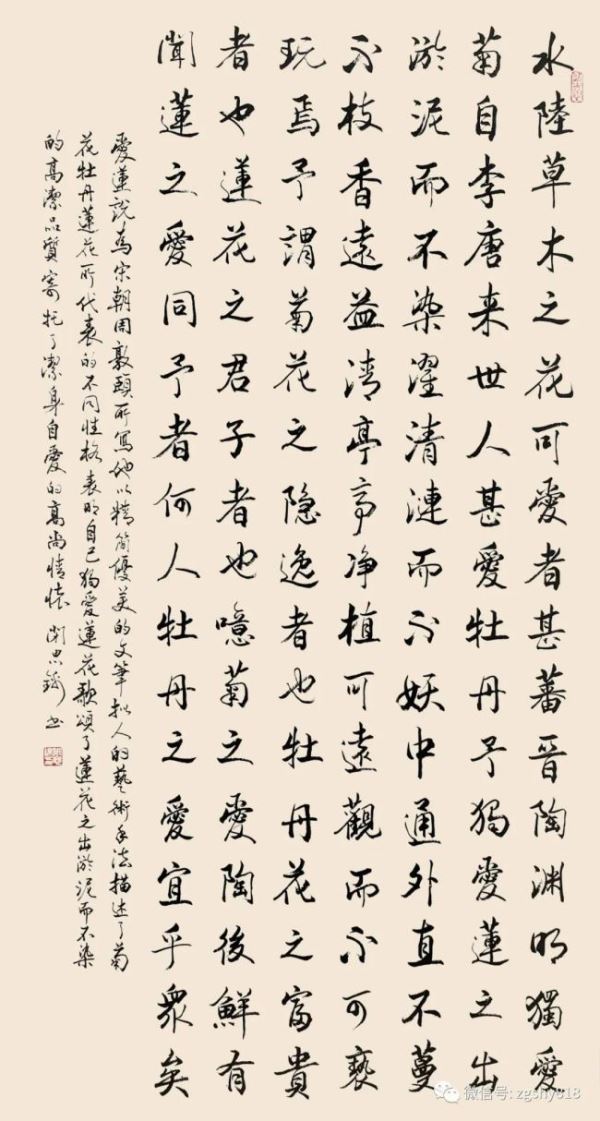 水陸草木之花可愛者甚蕃晉陶渊明獨愛
菊自李唐来世人甚愛牡丹予獨愛蓮之出
淤泥而不染濯清漣而不妖中通外直不蔓
不枝香遠益清亭亭净植可遠觀而不可褻
玩焉予謂菊花之隐逸者也牡丹花之富貴
者也蓮花之君子者也噫菊之愛陶後鮮有
聞蓮之愛同予者何人牡丹之愛宜乎衆矣
愛蓮說為宋朝周敦頤所寫他以精简優美的文筆拟人的藝術手法描述了菊
花牡丹蓮花所代表的不同性格表明自己獨愛蓮花歌頌了蓮花之出淤泥而不染
的高潔品質寄托了潔身自愛的高尚情懷 书
微信号: zgshyc18